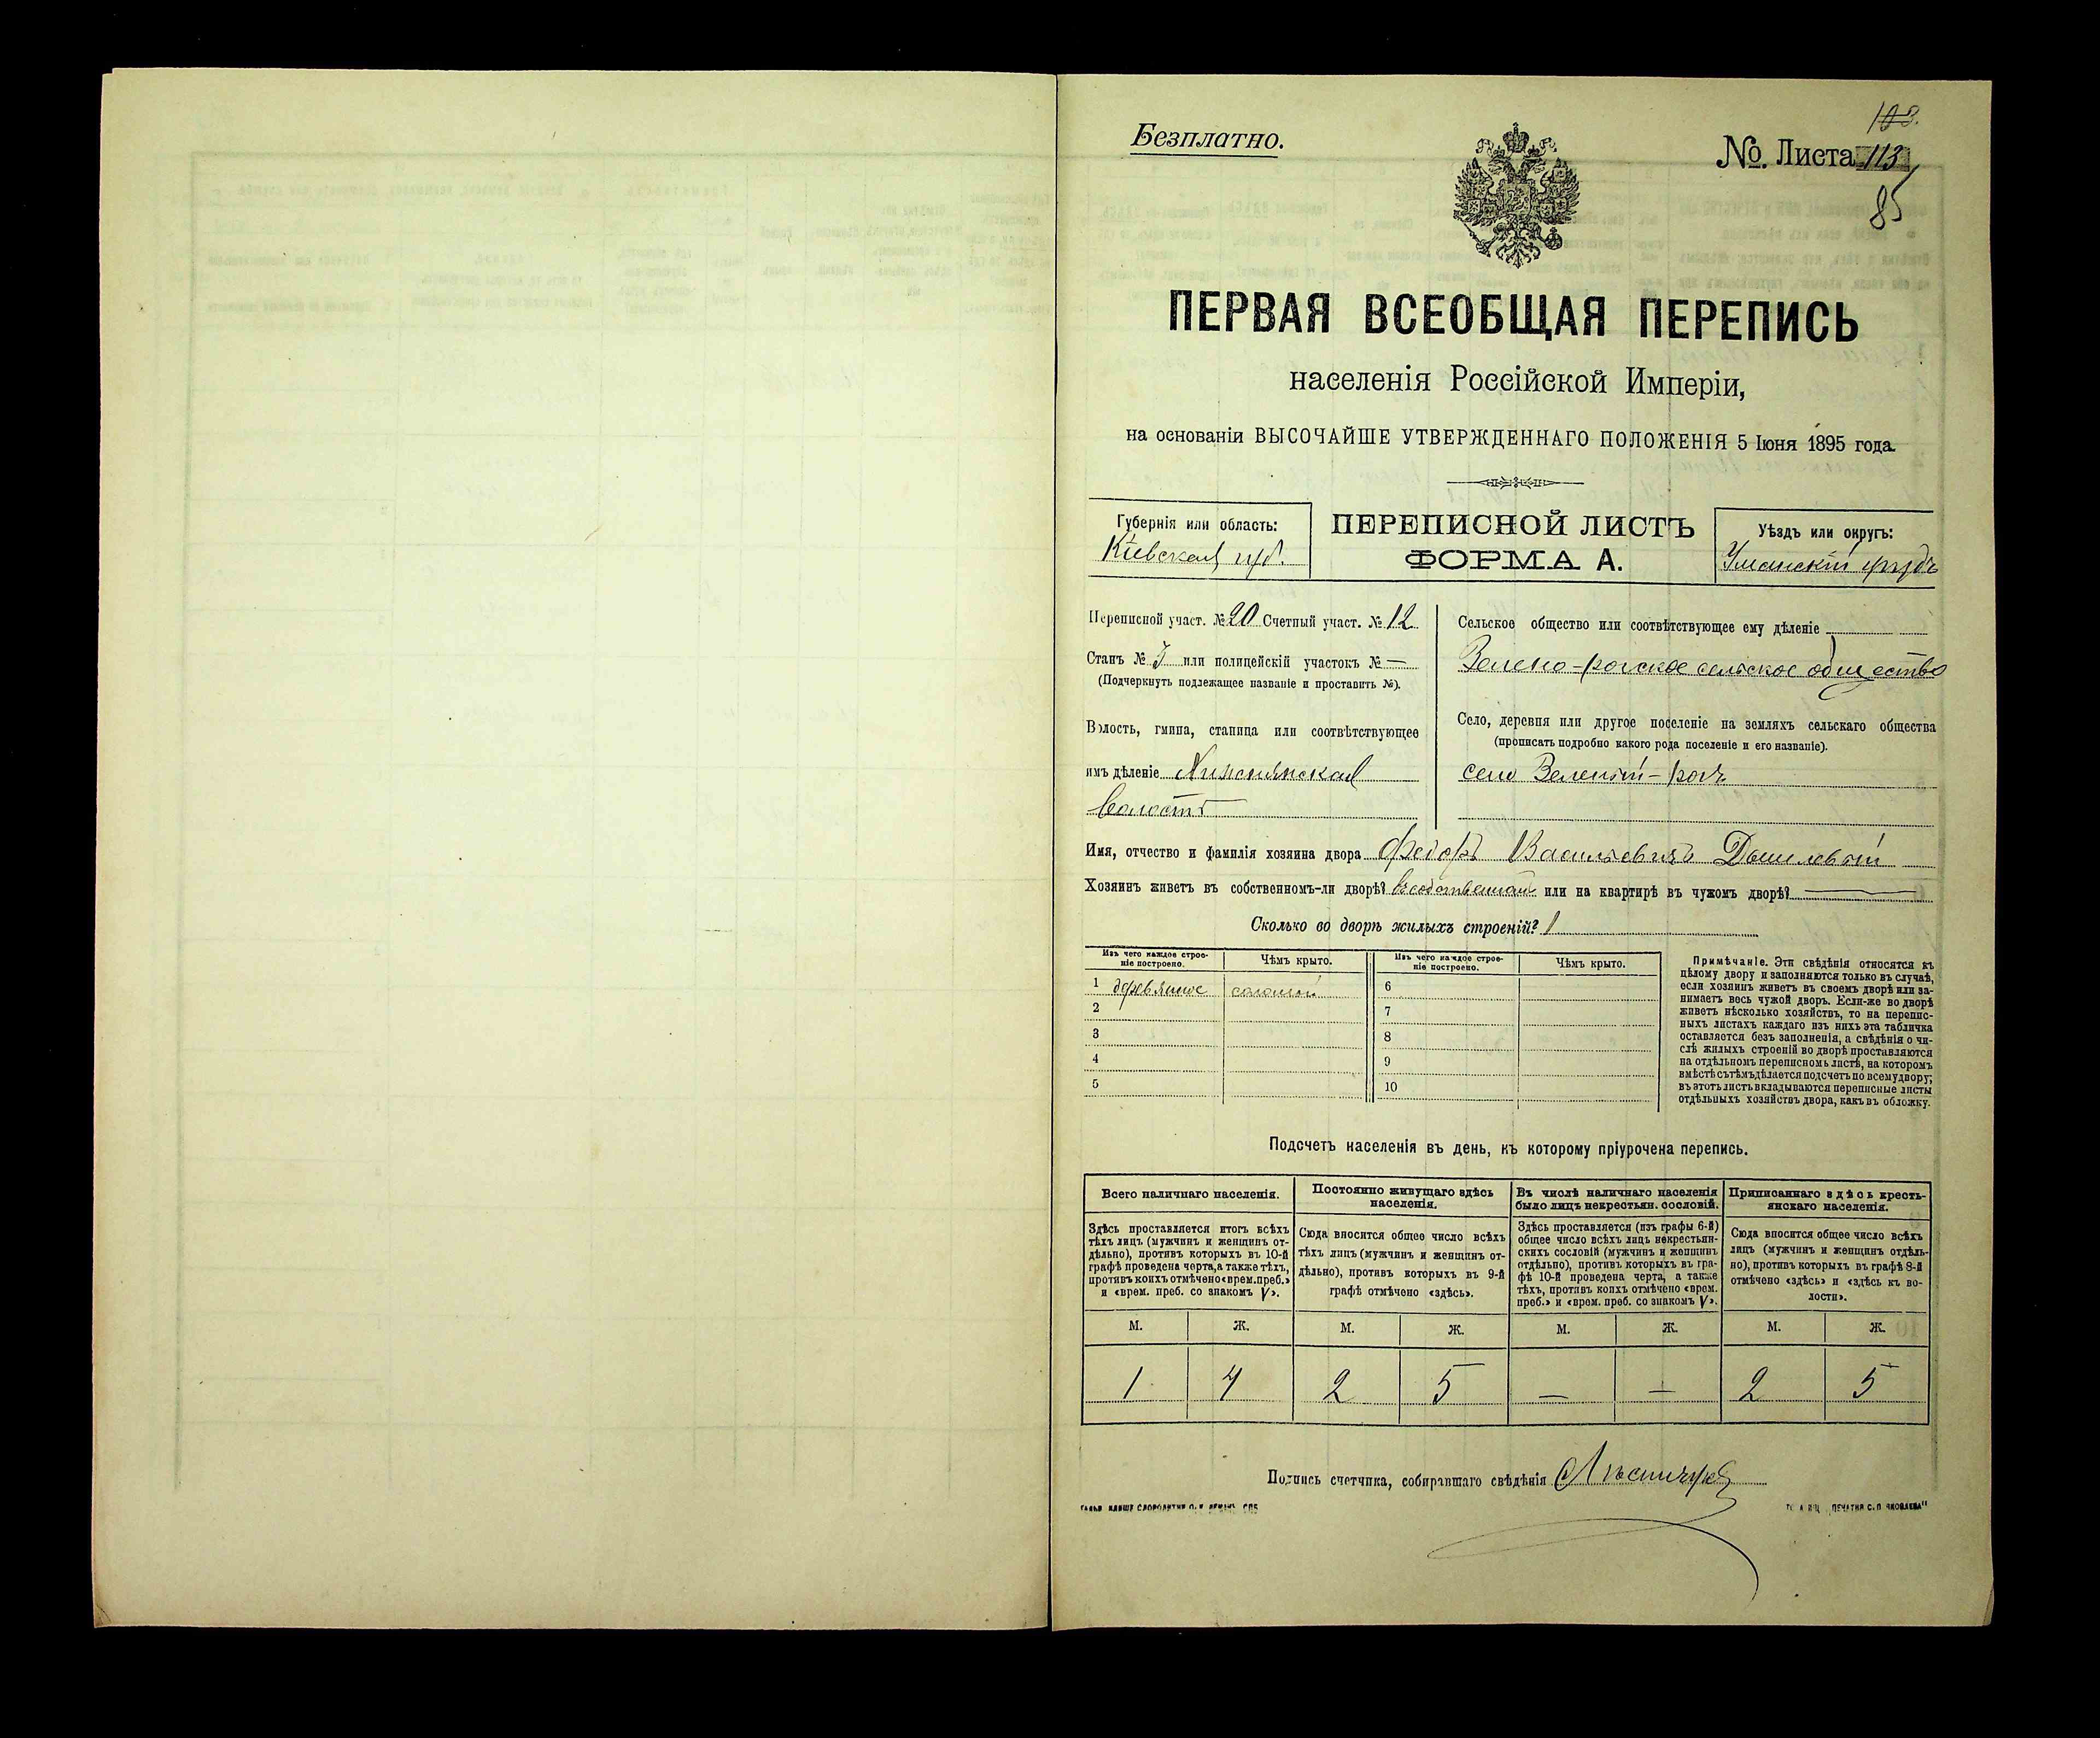 Безплатно.
108.
№. Листа 113
85
ПЕРВАЯ ВСЕОБЩАЯ ПЕРЕПИСЬ
населенія Россійской Имперіи,
на основаніи ВЫСОЧАЙШЕ УТВЕРЖДЕННАГО ПОЛОЖЕНІЯ 5 Іюня 1895 года.
Губернія или область:
Кіевская губ.
ПЕРЕПИСНОЙ ЛИСТЪ
ФОРМА А.
Уѣздъ или округъ:
Уманскій уѣздъ
Переписной участ. № 20 Счетный участ. № 12
Станъ № 3 или полицейскій участокъ № —
(Подчеркнуть подлежащее названіе и проставить №).
Волость, гмина, станица или соотвѣтствующее
имъ дѣленіе
волость
Сельское общество или соотвѣтствующее ему дѣленіе
Зелено-рогское сельское общество
Село, деревня или другое поселеніе на земляхъ сельскаго общества
(прописать подробно какого рода поселеніе и его названіе).
село Зеленый-рогъ
Имя, отчество и фамилія хозяина двора Федоръ Васильевичъ Дышлевый
Хозяинъ живетъ въ собственномъ-ли дворѣ? въ собственномъ или на квартирѣ въ чужомъ дворѣ? —
Сколько во дворѣ жилыхъ строеній? 1
Изъ чего каждое строе-
ніе построено.
Чѣмъ крыто.
Изъ чего каждое строе-
ніе построено.
Чѣмъ крыто.
1 деревянное соломой
2
3
4
5
6
7
8
9
10
Примѣчаніе. Эти свѣдѣнія относятся къ
цѣлому двору и заполняются только въ случаѣ,
если хозяинъ живетъ въ своемъ дворѣ или за-
нимаетъ весь чужой дворъ. Если-же во дворѣ
живетъ нѣсколько хозяйствъ, то на перепис-
ныхъ листахъ каждаго изъ нихъ эта табличка
оставляется безъ заполненія, а свѣдѣнія о чи-
слѣ жилыхъ строеній во дворѣ проставляются
на отдѣльномъ переписномъ листѣ, на которомъ
вмѣстѣ съ тѣмъ дѣлается подсчетъ по всему двору;
въ этотъ листъ вкладываются переписные листы
отдѣльныхъ хозяйствъ двора, какъ въ обложку.
Подсчетъ населенія въ день, къ которому пріурочена перепись.
Всего наличнаго населенія.
Здѣсь проставляется итогъ всѣхъ
тѣхъ лицъ (мужчинъ и женщинъ от-
дѣльно), противъ которыхъ въ 10-й
графѣ проведена черта, а также тѣхъ,
противъ коихъ отмѣчено «врем. преб.»
и «врем. преб. со знакомъ V».
Постоянно живущаго здѣсь
населенія.
Сюда вносится общее число всѣхъ
тѣхъ лицъ (мужчинъ и женщинъ от-
дѣльно), противъ которыхъ въ 9-й
графѣ отмѣчено «здѣсь».
Въ числѣ наличнаго населенія
было лицъ некрестьян. сословій.
Здѣсь проставляется (изъ графы 6-й)
общее число всѣхъ лицъ некрестьян-
скихъ сословій (мужчинъ и женщинъ
отдѣльно), противъ которыхъ въ гра-
фѣ 10-й проведена черта, а также
тѣхъ, противъ коихъ отмѣчено «врем.
преб.» и «врем. преб. со знакомъ V».
Приписаннаго здѣсь кресть-
янскаго населенія.
Сюда вносится общее число всѣхъ
лицъ (мужчинъ и женщинъ отдѣль-
но), противъ которыхъ въ графѣ 8-й
отмѣчено «здѣсь» и «здѣсь къ во-
лости».
М. Ж. М. Ж. М. Ж. М. Ж.
1 4 2 5 — — 2 5
Подпись счетчика, собиравшаго свѣдѣнія